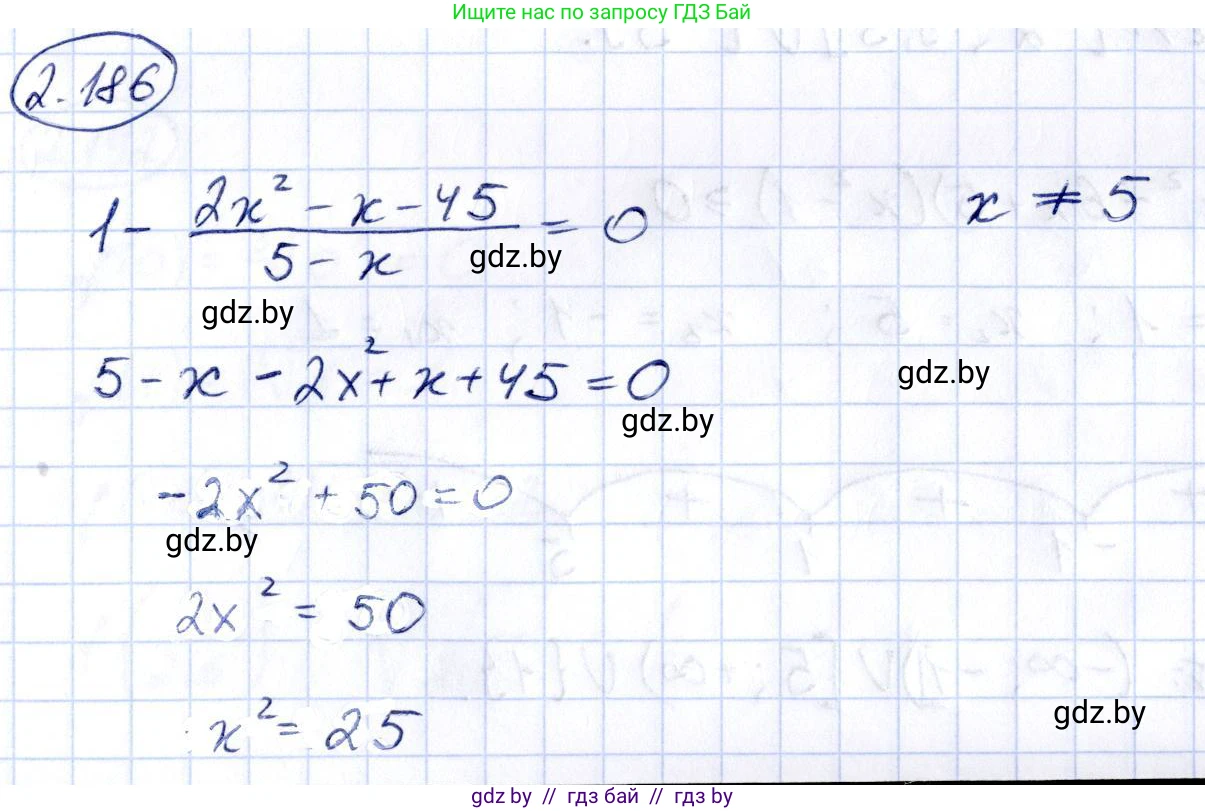 Ищите нас по запросу ГДЗ Бай
2.186
1 - (2x² - x - 45)/(5 - x) = 0    x ≠ 5
gdz.by
gdz.by
5 - x - 2x² + x + 45 = 0
gdz.by
gdz.by
-2x² + 50 = 0
gdz.by
2x² = 50
x² = 25
gdz.by
gdz.by // гдз бай // гдз by